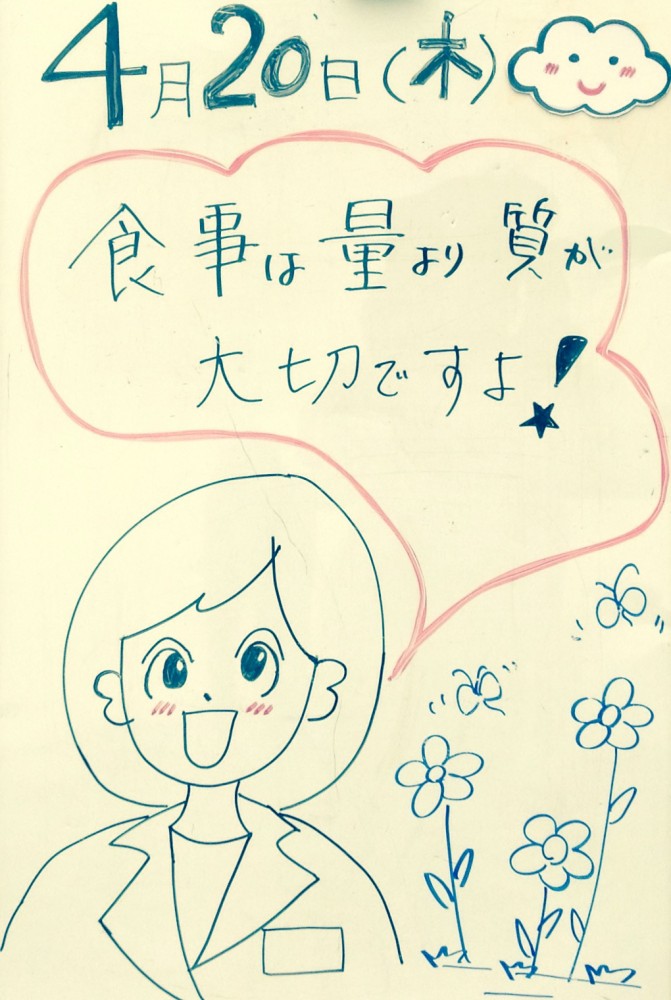 4月20日(木)
食事は量より質が
大切ですよ!